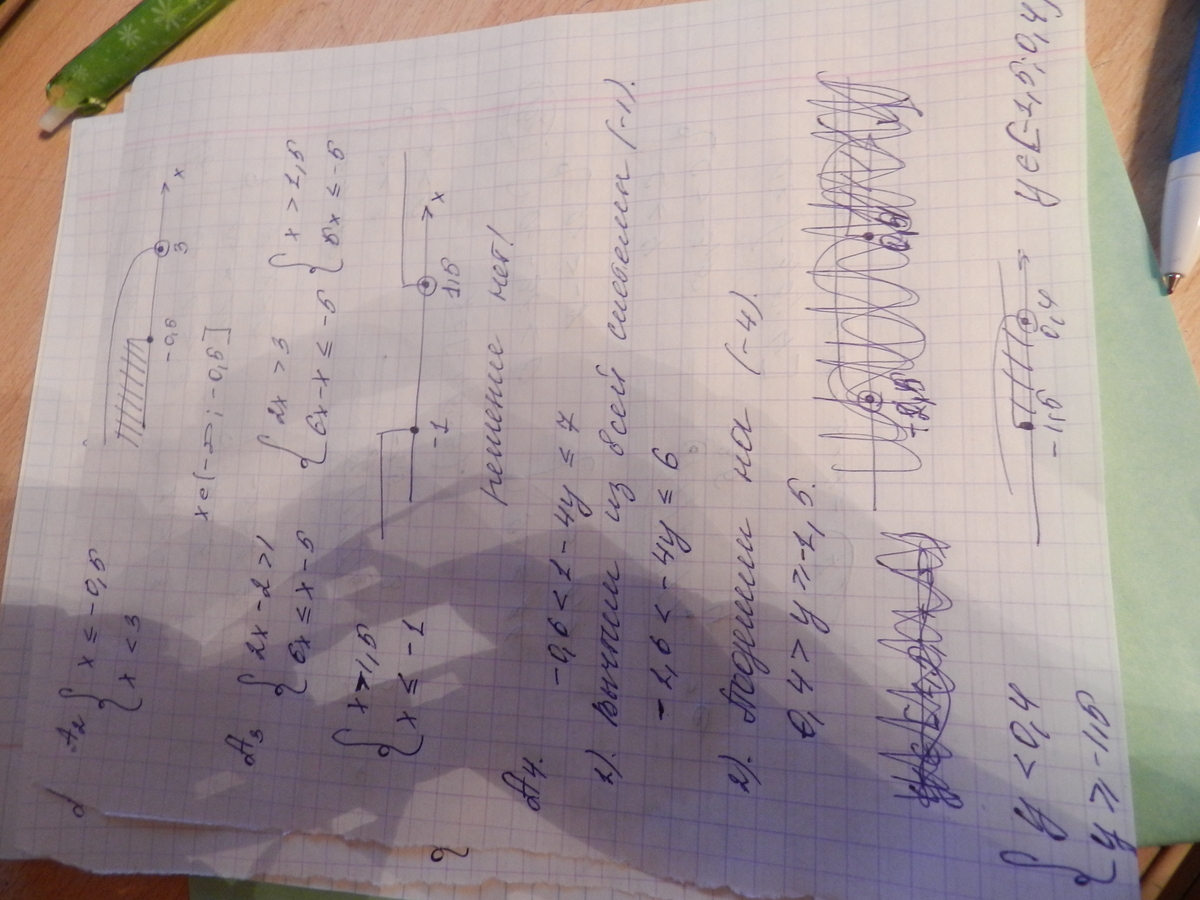 A2 { x ≤ -0,5
x < 3
-0,5 3 x
x ∈ (-∞; -0,5]
A3 { 2x - 2 > 1 { 2x > 3 { x > 1,5
6x ≤ x - 5 6x - x ≤ -5 5x ≤ -5
{ x > 1,5
x ≤ -1
-1 1,5 x
решение нет!
A4. -0,6 < 1 - 4y ≤ 7
1). Вычтем из всей системы (-1).
-1,6 < -4y ≤ 6
2). Поделим на (-4).
0,4 > y ≥ -1,5.
{ y < 0,4
y ≥ -1,5
-1,5 0,4
y ∈ [-1,5; 0,4)